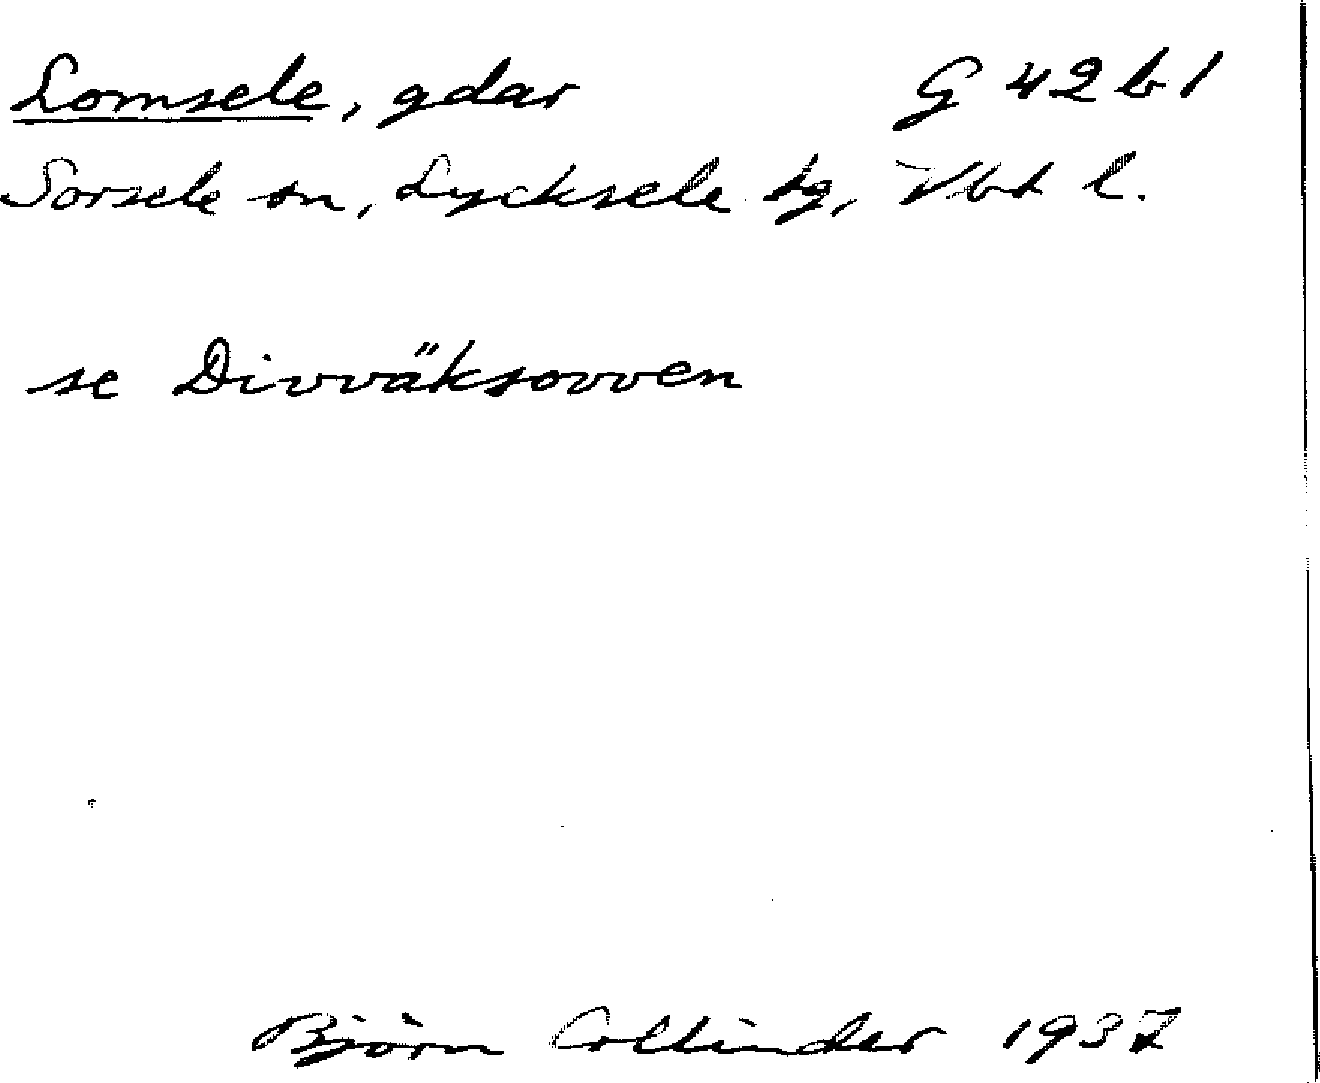 Lomsele, gdar G 42 b 1
Sorsele sn, Lycksele tg, Vbt l.
se Divväksovven
Björn Collinder 1937